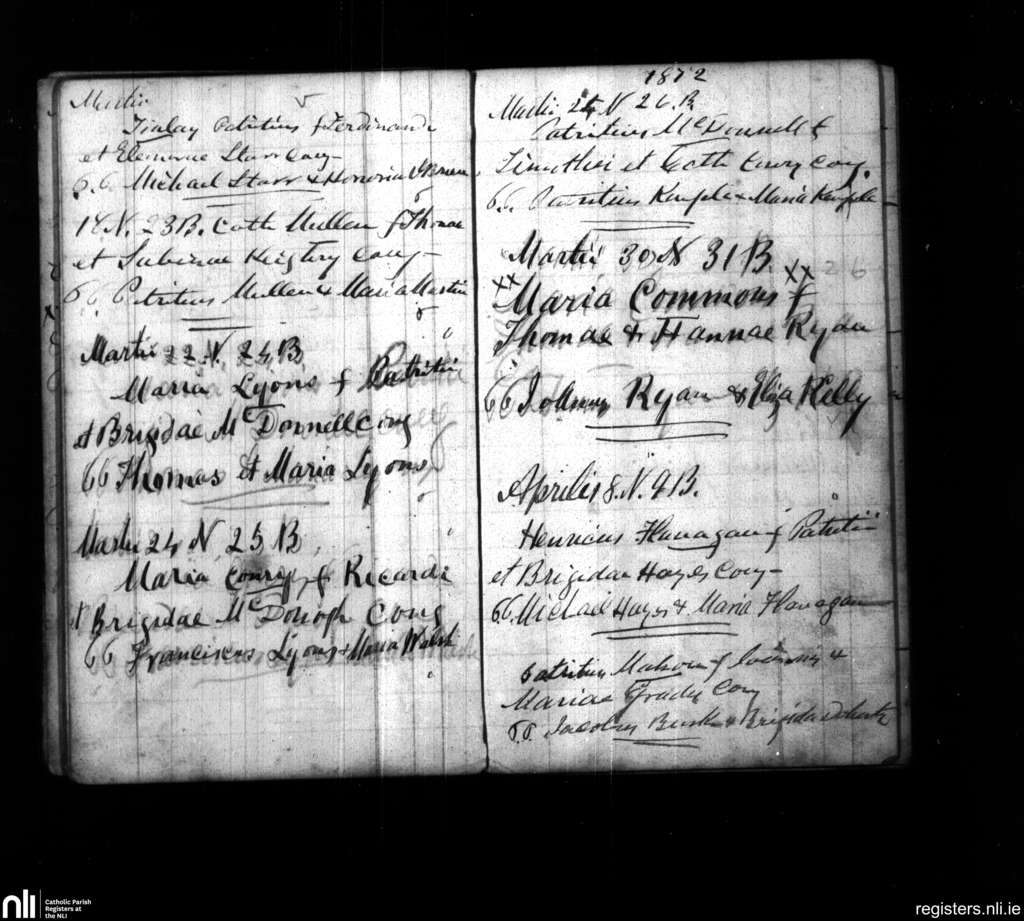 Martii
Finlay Patritius f Ferdinandi
et Elenorae Starr Conj
G.G Michael Starr & Honoria
18 N. 23 B. Cath Mullen f Thomae
et Sabinae Keighry Conj
GG Patritius Mullen & Maria Martin
Martii 22 N. 24 B
Maria Lyons f Patritii
et Brigidae McDonnell Conj
GG Thomas et Maria Lyons
Martii 24 N 25 B
Maria Conry f Ricardi
et Brigidae McDonogh Conj
GG Franciscus Lyons & Maria Walsh
1872
Martii 24 N 26 B
Patritius McDonnell f
Timothei et Cath Conry Conj.
G.G. Patritius Kenple & Maria Kenple
Martii 30 N 31 B
xx xx 26
Maria Commons f
Thomae & Hannae Ryan
GG Johannes Ryan & Eliza Kelly
Aprilis 8. N. 9 B.
Henricus Flanagan f Patritii
et Brigidae Hayes Conj
GG. Michael Hayes & Maria Flanagan
Patritius Mahon f Joannis &
Mariae Grady Conj
G.G. Jacobus Burke & Brigida
nli
Catholic Parish
Registers at
the NLI
registers.nli.ie